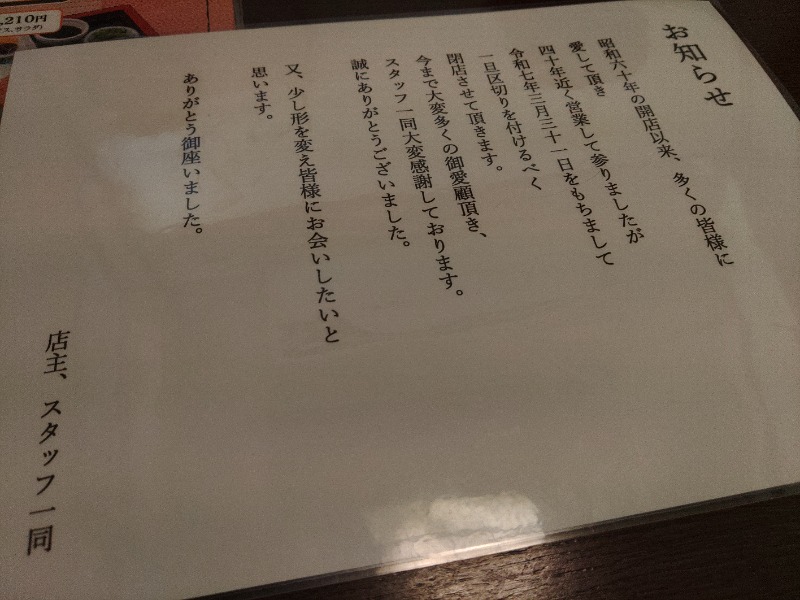 お知らせ
昭和六十年の開店以来、多くの皆様に
愛して頂き
四十年近く営業して参りましたが
令和七年三月三十一日をもちまして
一旦区切りを付けるべく
閉店させて頂きます。
今まで大変多くの御愛顧頂き、
スタッフ一同大変感謝しております。
誠にありがとうございました。
又、少し形を変え皆様にお会いしたいと
思います。
ありがとう御座いました。
店主、スタッフ一同
,210円
サラダ)